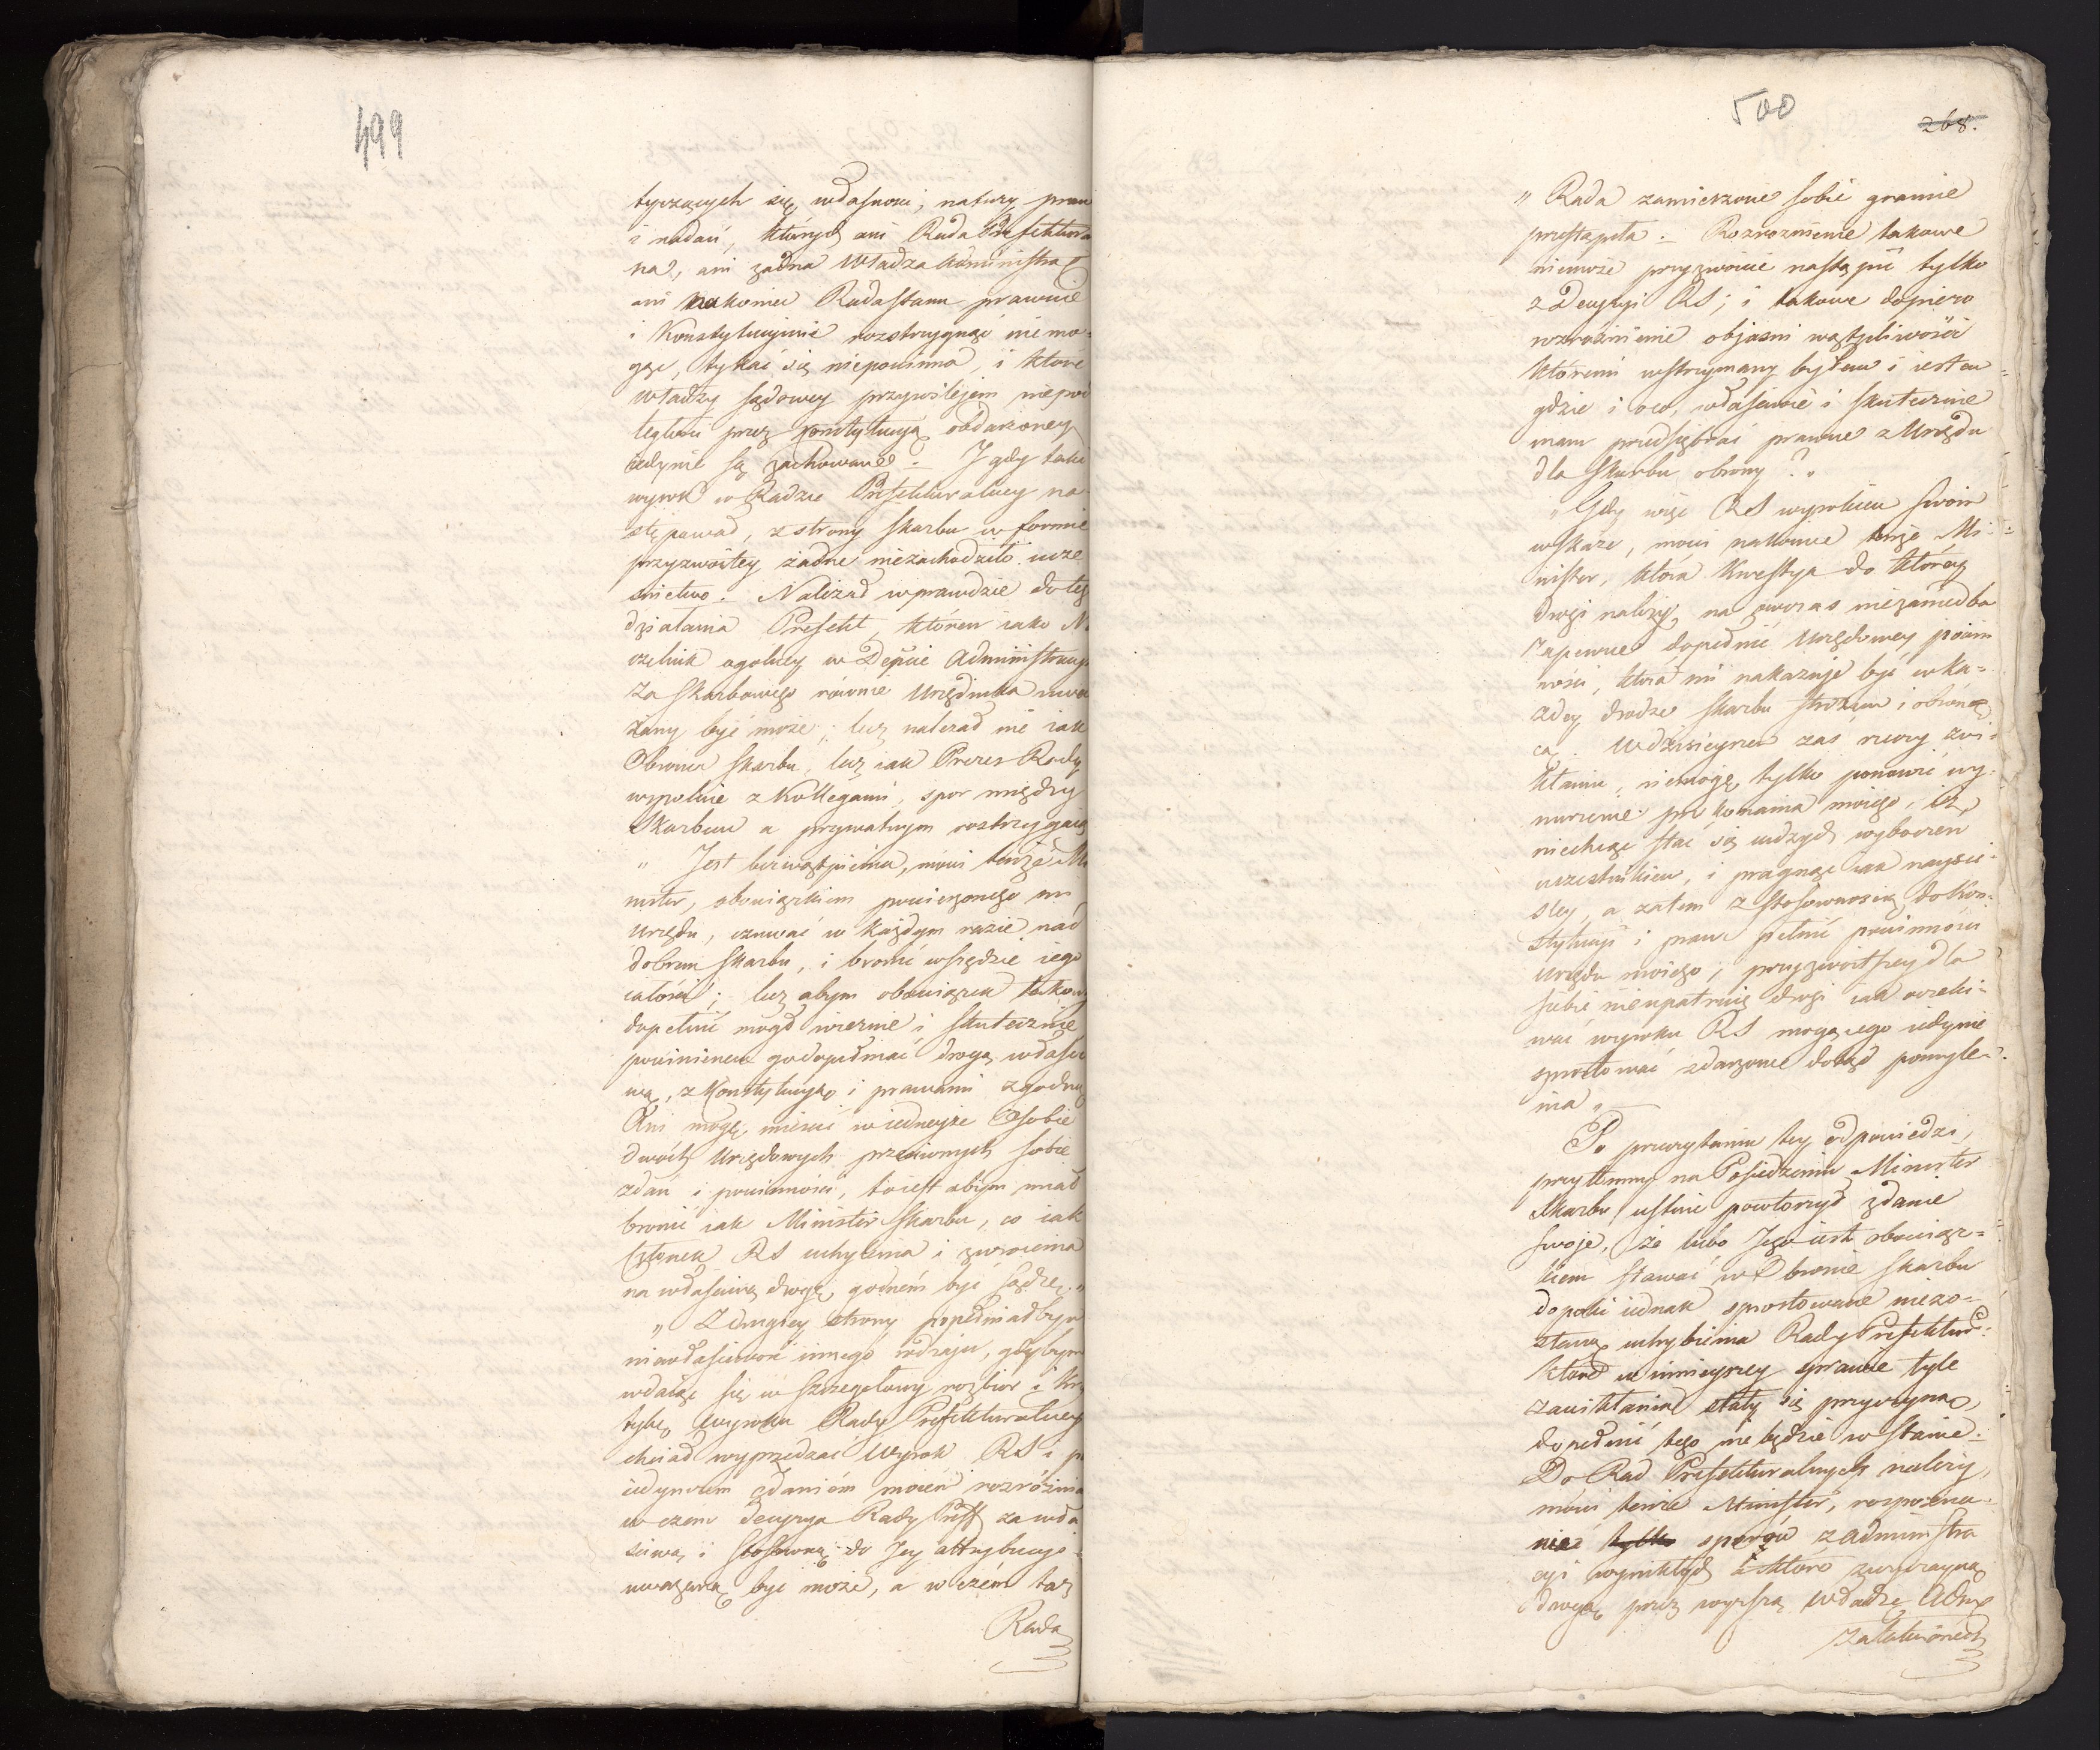 499
tyczących się własności, natury praw
i nadań, których ani Rada Prefektura
na, ani żadna Władza Administra
ani nakoniec Rada Stanu prawnie
i Konstytucyinie rozstrzygnąć nie mo=
gąc, tykać się niepowinna, i które
władzy sądowey przywilejem niepod
ległości przez konstytucyą obdarzoney
iedynie są zachowane. I gdy taki
wyrok w Radzie Prefekturalney na
stępował, z strony Skarbu w formie
przyzwoitey żadne niezachodziło ucze
snictwo. Należał wprawdzie do teg
działania Prefekt, któren iako Na
czelnik ogolney w Depcie Administracyi
za Skarbowego równie Urzędnika uwa
żany być może; lecz należał nie iak
Obronca Skarbu, lecz iak Prezes Rady
wspolnie z Kollegami, spor między
Skarbem a prywatnym rostrzygaią
„ Jest bezwątpienia, mówi tenże Mi
nister, obowiązkiem powierzonego mi
Urzędu, czuwać w każdym razie nad
dobrem Skarbu, i bronić wszędzie iego
całości; lecz abym obowiązek takowy
dopełnić mógł wiernie i skutecznie
powinienem go dopełniać drogą właści
wą, z Konstytucyą i prawami zgodną
Ani mogę mieścić w iedneyże Osobie
dwóch Urzędowych przeciwnych sobie
zdań i powinności, to iest abym miał
bronić iak Minister Skarbu, co iak
Członek RS uchylenia i zwrócenia
na właściwą drogę godném być sądzę. „
„ Z drugiey strony popełniałbym
niewłaściwość innego rodzaju, gdybym
wdaiąc się w szczegółowy rozbior i kry
tykę wyroku Rady Prefekturalney
chciał wyprzedzać Wyrok RS i po
iedynczem zdaniem moiem rozróżnia
w czem decyzya Rady Preff za wła
sciwą i stosowną do Jey attrybucyi
uważaną być może, a w czém taż
Rada
500
268.
„ Rada zamierzone sobie granice
przestąpiła. Rozroznienie takowe
niemoże przyzwoicie nastąpić tylko
z Decyzyi RS; i takowe dopiero
rozroznienie objaśni wątpliwości
któremi wstrzymany byłem i iestem
gdzie i oco, właściwie i skutecznie
mam przedsiębrać prawne z Urzędu
dla Skarbu obrony? „
„ Gdy więc RS wyrokiem swoim
wskaże, mowi nakoniec tenże Mi=
nister, która kwestya do któréy
drogi należy, na owczas niezaniedba
zapewne dopełnić Urzędowey powin
ności, która mi nakazuje być w ka=
żdey drodze Skarbu stróżem i obroń
cą. W dzisieyszem zaś rzeczy zwi=
kłaniu, niemogę tylko ponowić wy=
nurzenie przekonania moiego, iż
niechcąc stać się uchyb wyboczen
uczestnikiem, i pragnąc iak nayści=
śley, a zatem z stosownością do Kon=
stytucyi i praw pełnić powinności
Urzędu moiego, przyzwoitszey dla
siebie nieupatruię drogi iak oczeki=
wać wyroku RS mogącego iedynie
sprostować zdarzone dotąd pomyłe=
nia „
Po przeczytaniu tey odpowiedzi,
przytomny na Posiedzeniu Minister
Skarbu ustnie powtorzył zdanie
swoje, że lubo Jego iest obowiąz=
kiem stawać w obronie Skarbu
dopoki iednak sprostowane niezo=
staną uchybienia Rady Prefektur:
które w ninieyszey sprawie tyle
zawikłania stały się przyczyną,
dopełnić tego nie będzie w stanie.
Do Rad Prefekturalnych należy,
mówi tenże Minister, rozpozna=
nie tylko sporów z administra
cyi wynikłych i które zwyczayną
drogą przez wyższą władzę Adm
załatwione